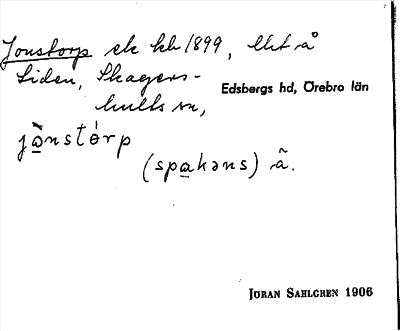 Jonstorp ek kb 1899, litt å
Liden, Skagers-
hults sn,
Edsbergs hd, Örebro län
jò̱nstórp
(spa̱kəns) ã.
JÖRAN SAHLGREN 1906